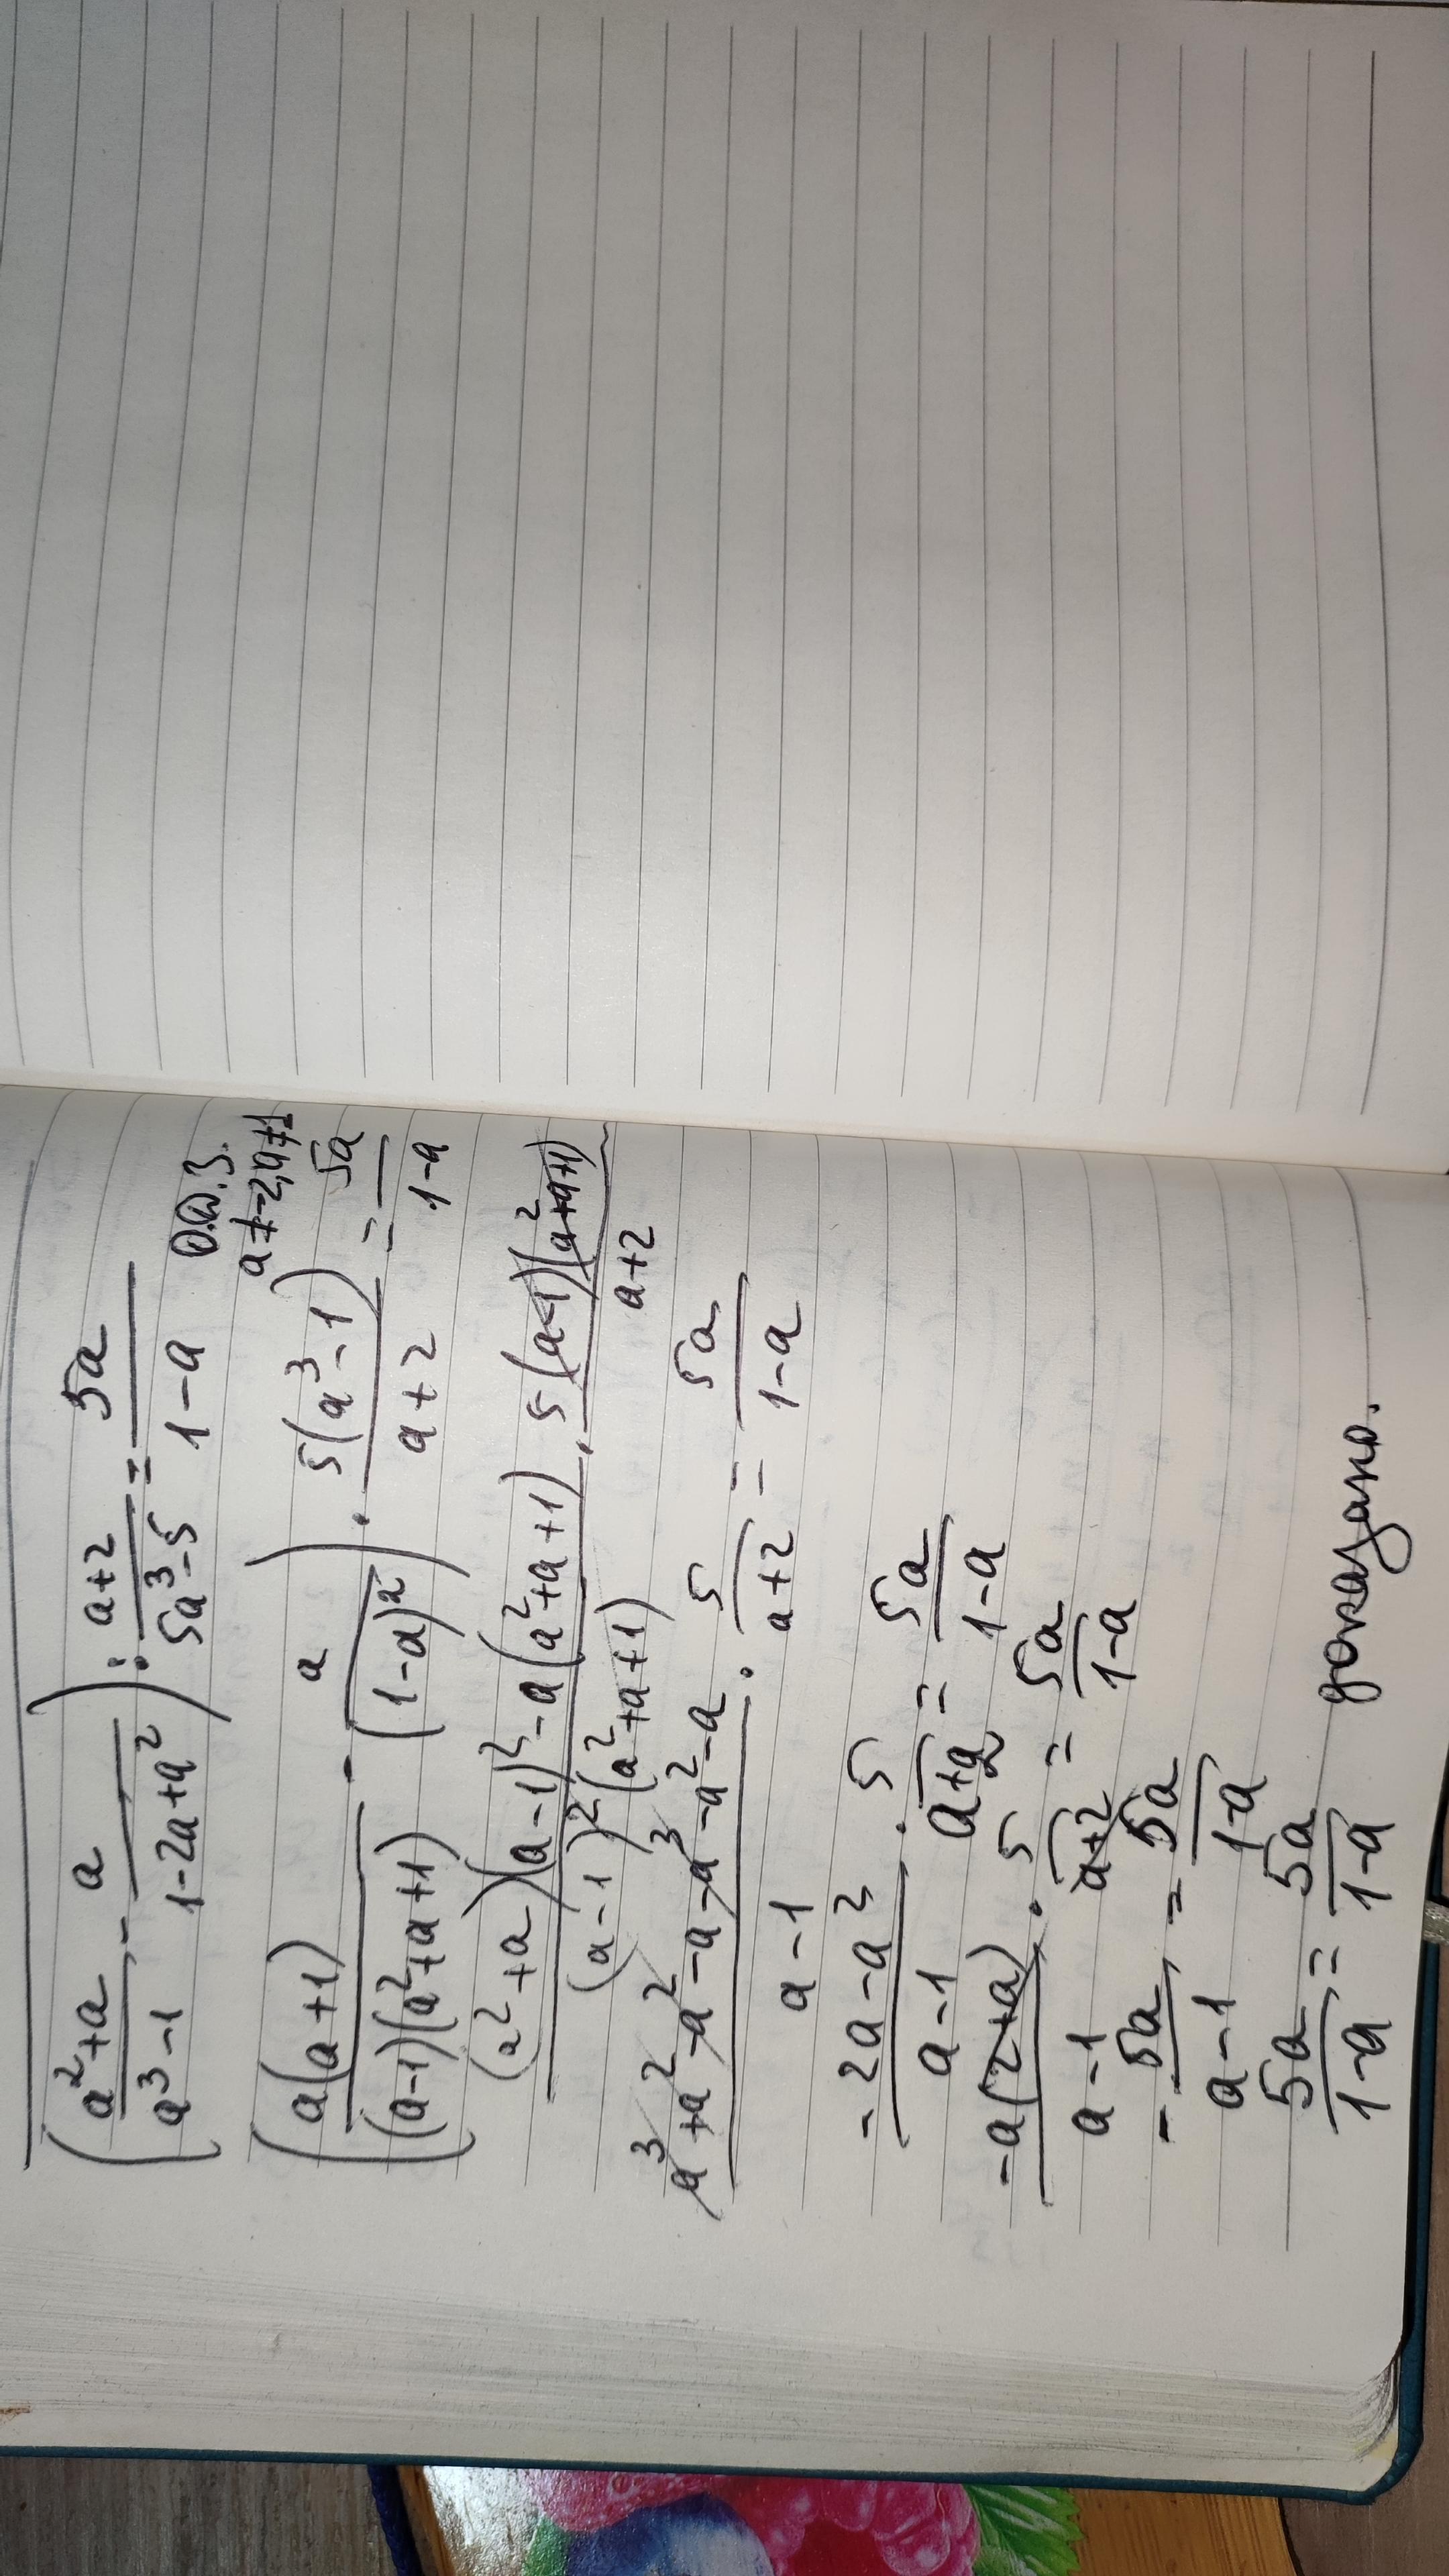 (a²+a/a³-1 - a/1-2a+a²) : a+2/5a³-5 = 5a/1-a
О.Д.З.
a≠-2, a≠1
(a(a+1)/(a-1)(a²+a+1) - a/(1-a)²) · 5(a³-1)/a+2 = 5a/1-a
(a²+a)(a-1)²-a(a²+a+1)/(a-1)²(a²+a+1) · 5(a-1)(a²+a+1)/a+2
a³+a²-a²-a-a³-a²-a/a-1 · 5/a+2 = 5a/1-a
-2a-a²/a-1 · 5/a+2 = 5a/1-a
-a(2+a)/a-1 · 5/a+2 = 5a/1-a
-5a/a-1 = 5a/1-a
5a/1-a = 5a/1-a доказано.